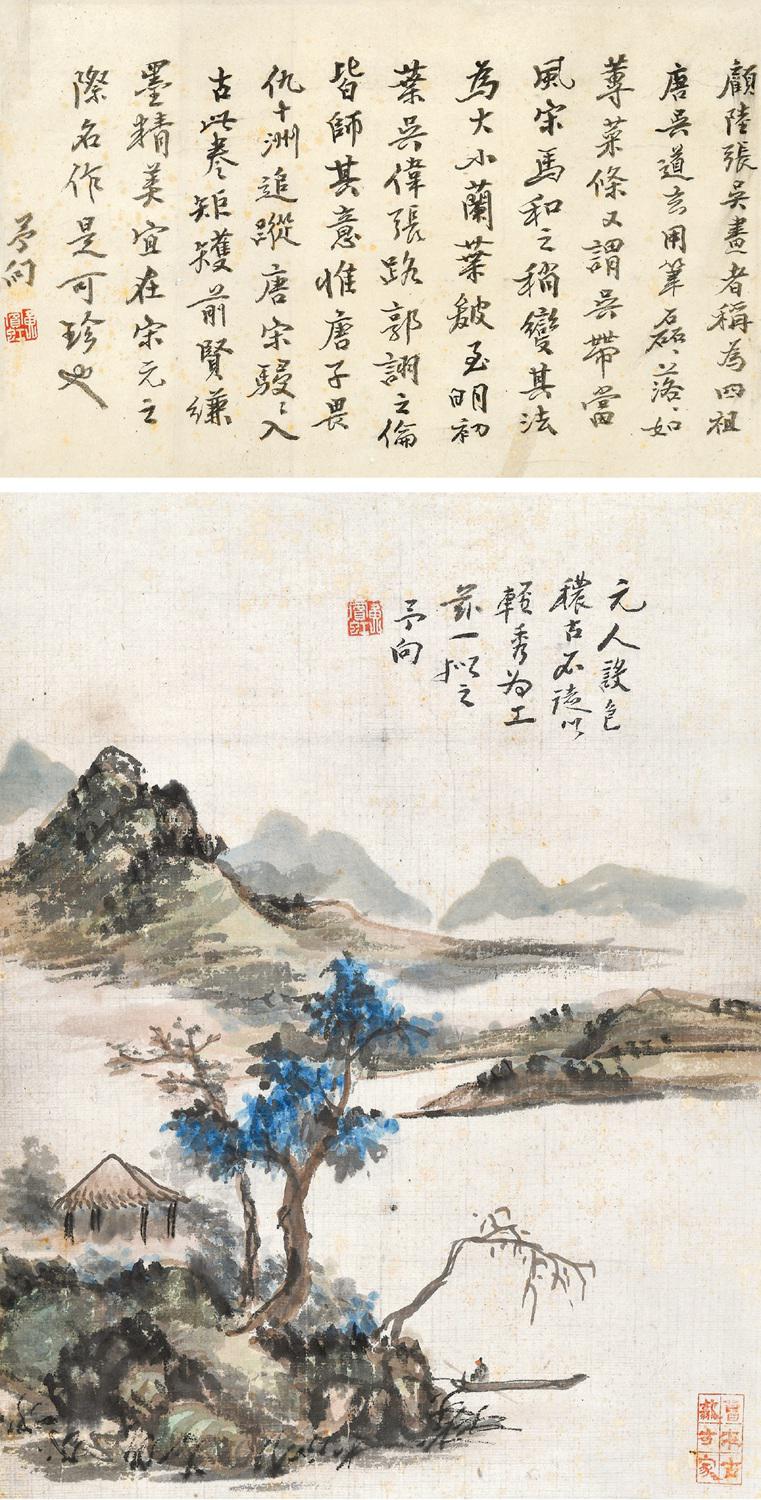 顧陸張吳畫者稱為四祖
唐吳道玄用筆磊磊落落如
蓴菜條又謂吳帶當
風宋馬和之稍變其法
為大小蘭葉皴至明初
葉吳偉張路郭詡之倫
皆師其意惟唐子畏
仇十洲追蹤唐宋駸駸入
古此卷矩矱前賢縑
墨精美宜在宋元之
際名作是可珍也
予向
黃賓虹
元人設色
穠古不徒以
輕秀為工
茲一擬之
予向
黃賓虹